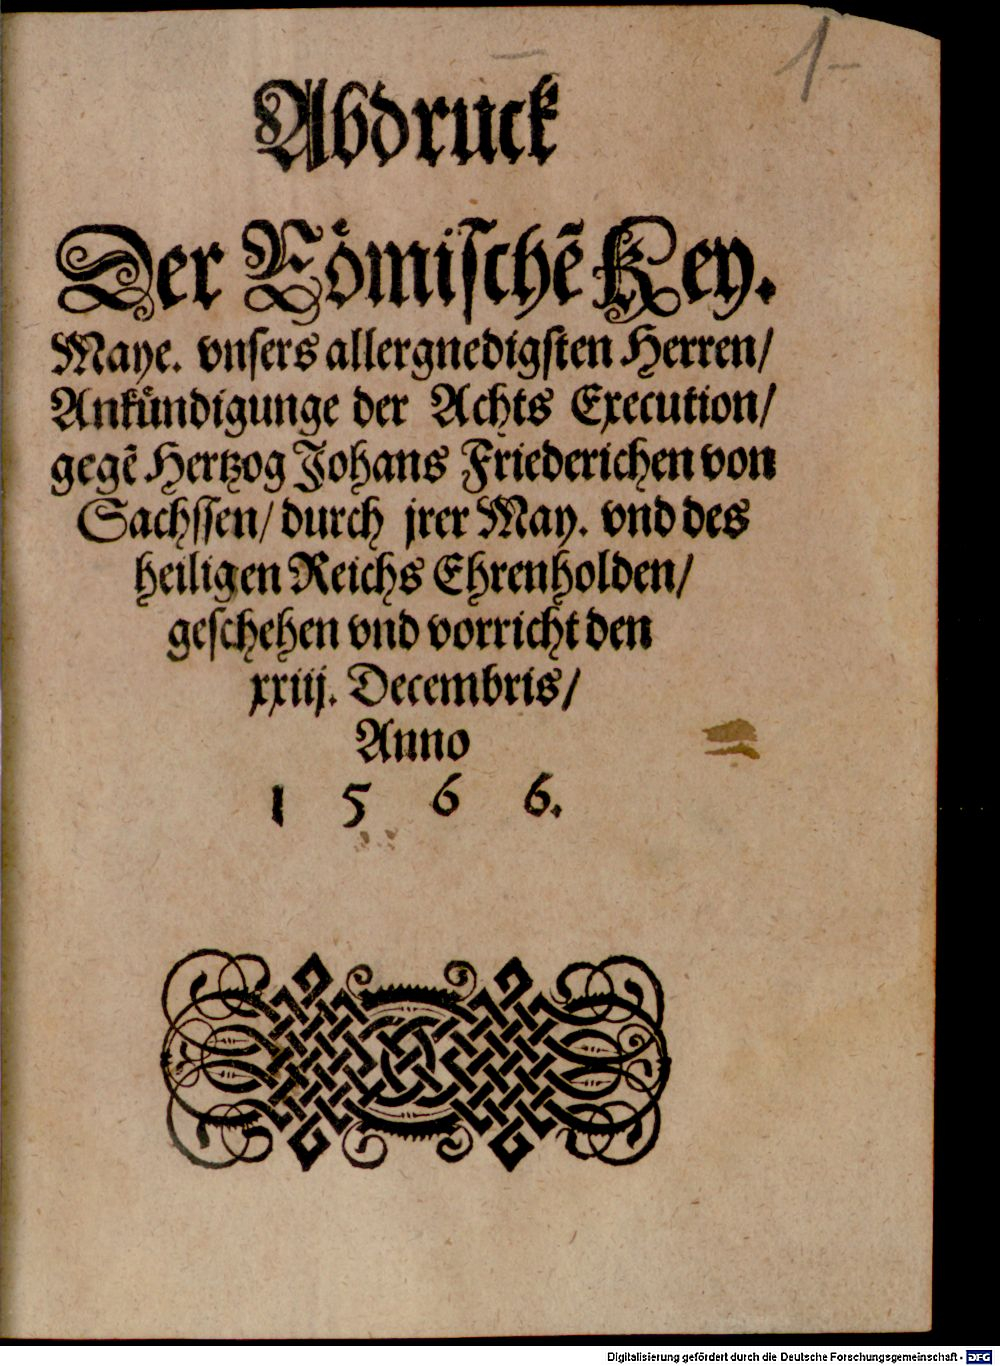 1-
Abdruck
Der Römischẽ Key.
Maye. vnsers allergnedigsten Herren/
Ankündigunge der Achts Execution/
gegẽ Hertzog Johans Friederichen von
Sachssen/ durch jrer May. vnd des
heiligen Reichs Ehrenholden/
geschehen vnd vorricht den
xxiij. Decembris/
Anno
1 5 6 6.
Digitalisierung gefördert durch die Deutsche Forschungsgemeinschaft - DFG